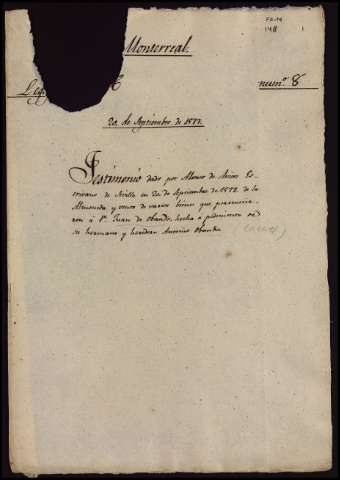 FA.14
148 1
Monterreal.
Leg numº 8
20. de Septiembre de 1572.
Testimonio dado por Alonso de Es-
crivano de Sevilla en 20 de Septiembre de 1572 de la
Almoneda y venta de varios bienes que pertenecie-
ron á Dn. Juan de Obando, hecha a pedimento de
su hermano y heredero Antonio Obando
(Caceres)